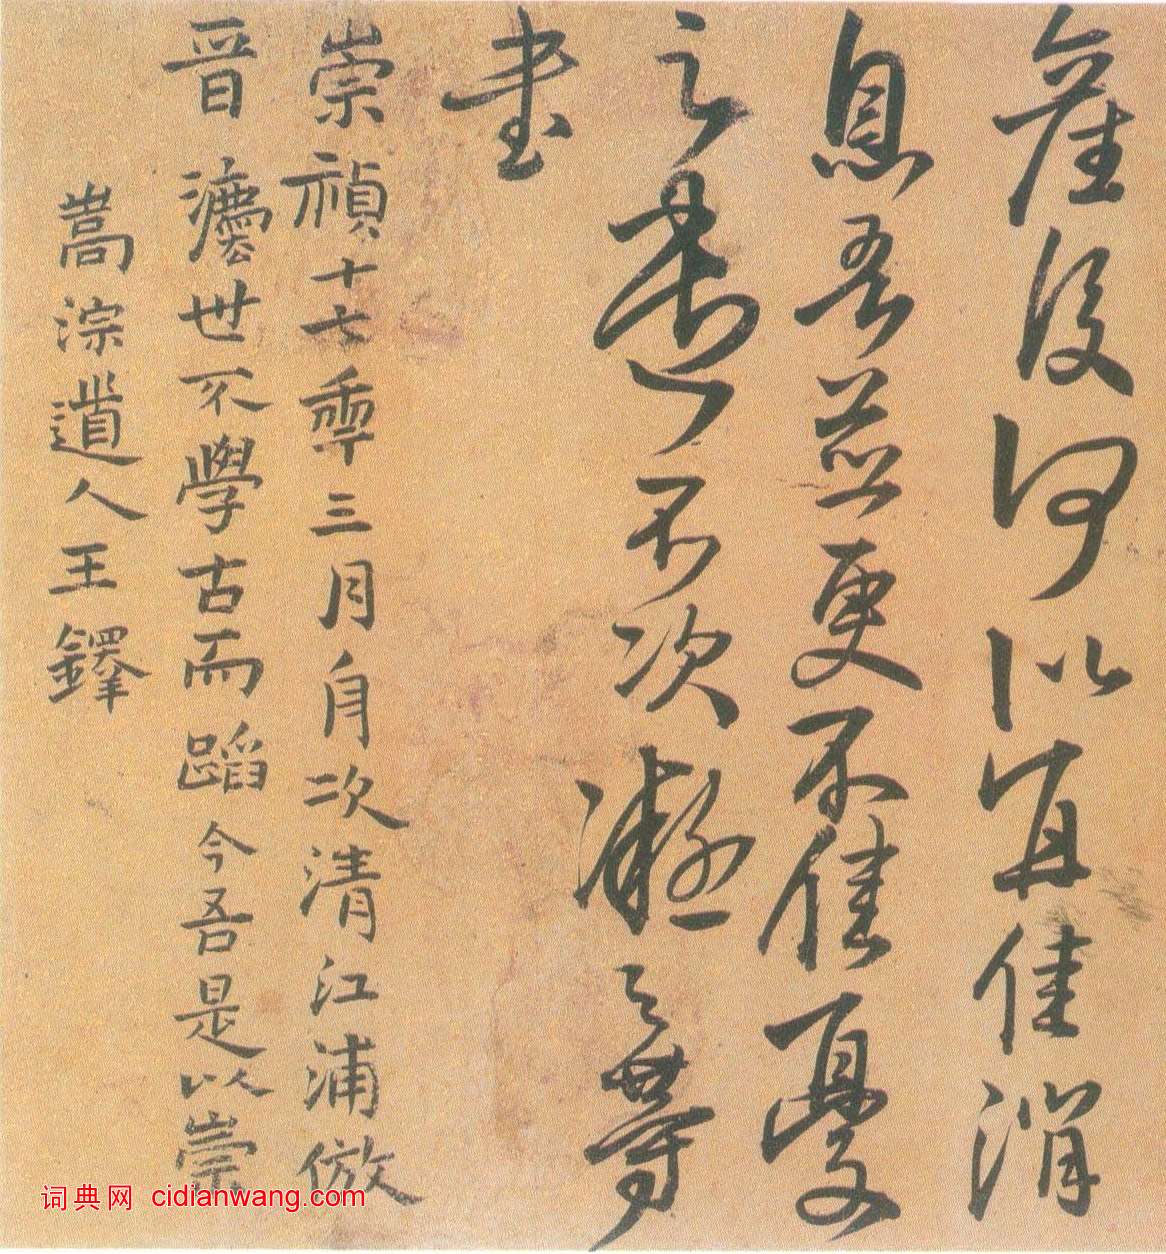 後何以宜佳消
息吾並更不佳憂
之不次凝之等
書
崇禎十七年三月舟次清江浦倣
晉灋世不學古而蹈今吾是以崇
嵩淙道人王鐸
词典网 cidianwang.com